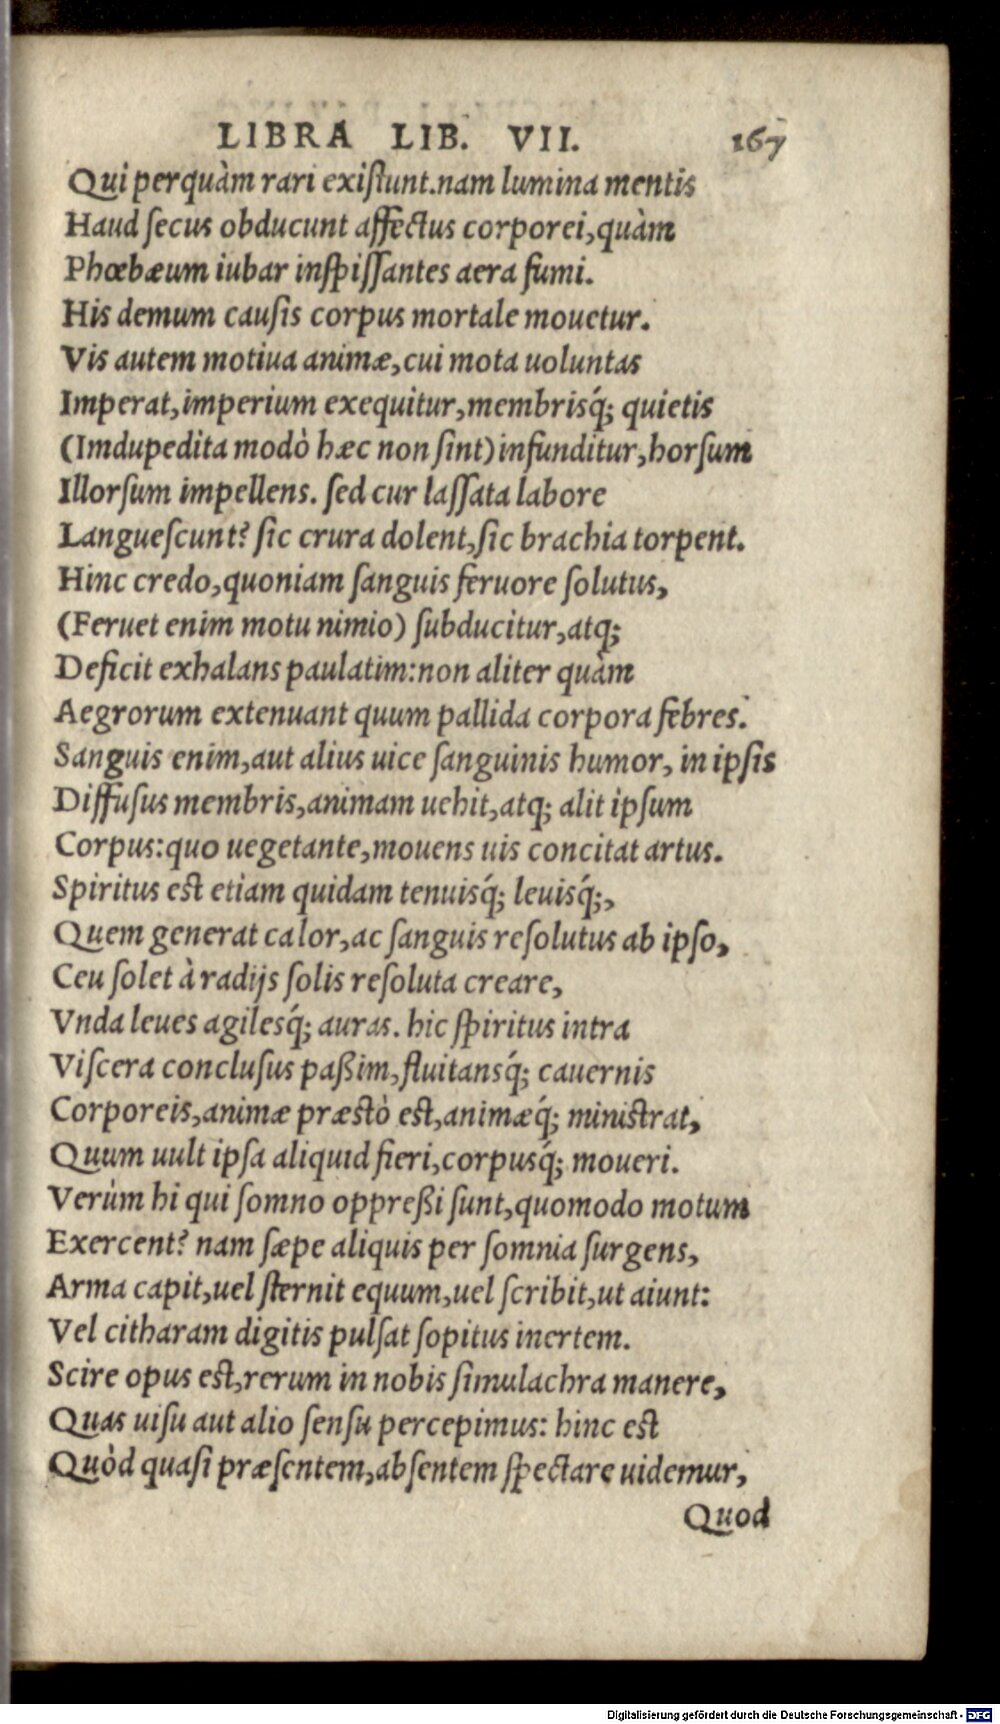 LIBRA LIB. VII. 167
Qui perquàm rari exiſtunt.nam lumina mentis
Haud ſecus obducunt affectus corporei,quàm
Phœbæum iubar inſpiſſantes aera fumi.
His demum cauſis corpus mortale mouetur.
Vis autem motiua animæ,cui mota uoluntas
Imperat,imperium exequitur,membrisq́; quietis
(Imdupedita modò hæc non ſint)infunditur,horſum
Illorſum impellens. ſed cur laſſata labore
Langueſcunt? ſic crura dolent,ſic brachia torpent.
Hinc credo,quoniam ſanguis feruore ſolutus,
(Feruet enim motu nimio) ſubducitur,atq;
Deficit exhalans paulatim:non aliter quàm
Aegrorum extenuant quum pallida corpora febres.
Sanguis enim,aut alius uice ſanguinis humor, in ipſis
Diffuſus membris,animam uehit,atq; alit ipſum
Corpus:quo uegetante,mouens uis concitat artus.
Spiritus est etiam quidam tenuisq́; leuisq́;,
Quem generat calor,ac ſanguis reſolutus ab ipſo,
Ceu ſolet à radijs ſolis reſoluta creare,
Vnda leues agilesq́; auras. hic ſpiritus intra
Viſcera concluſus paßim,fluitansq́; cauernis
Corporeis,animæ præstò est,animæq́; ministrat,
Quum uult ipſa aliquid fieri,corpusq́; moueri.
Verùm hi qui ſomno oppreßi ſunt,quomodo motum
Exercent? nam ſæpe aliquis per ſomnia ſurgens,
Arma capit,uel ſternit equum,uel ſcribit,ut aiunt:
Vel citharam digitis pulſat ſopitus inertem.
Scire opus est,rerum in nobis ſimulachra manere,
Quas uiſu aut alio ſenſu percepimus: hinc est
Quòd quaſi præſentem,abſentem ſpectare uidemur,
Quod
Digitalisierung gefördert durch die Deutsche Forschungsgemeinschaft - DFG